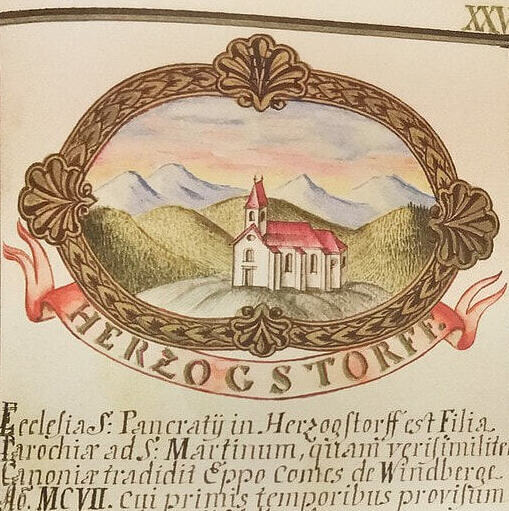 XXV
HERZOGSTORFF.
Ecclesia S: Pancratÿ in Herzogstorff est Filia
Parochiæ ad S: Martinum, quam verisimilite
Canoniæ tradidit Eppo Comes de Windberge
Aō. MCVII. cui primis temporibus provisum